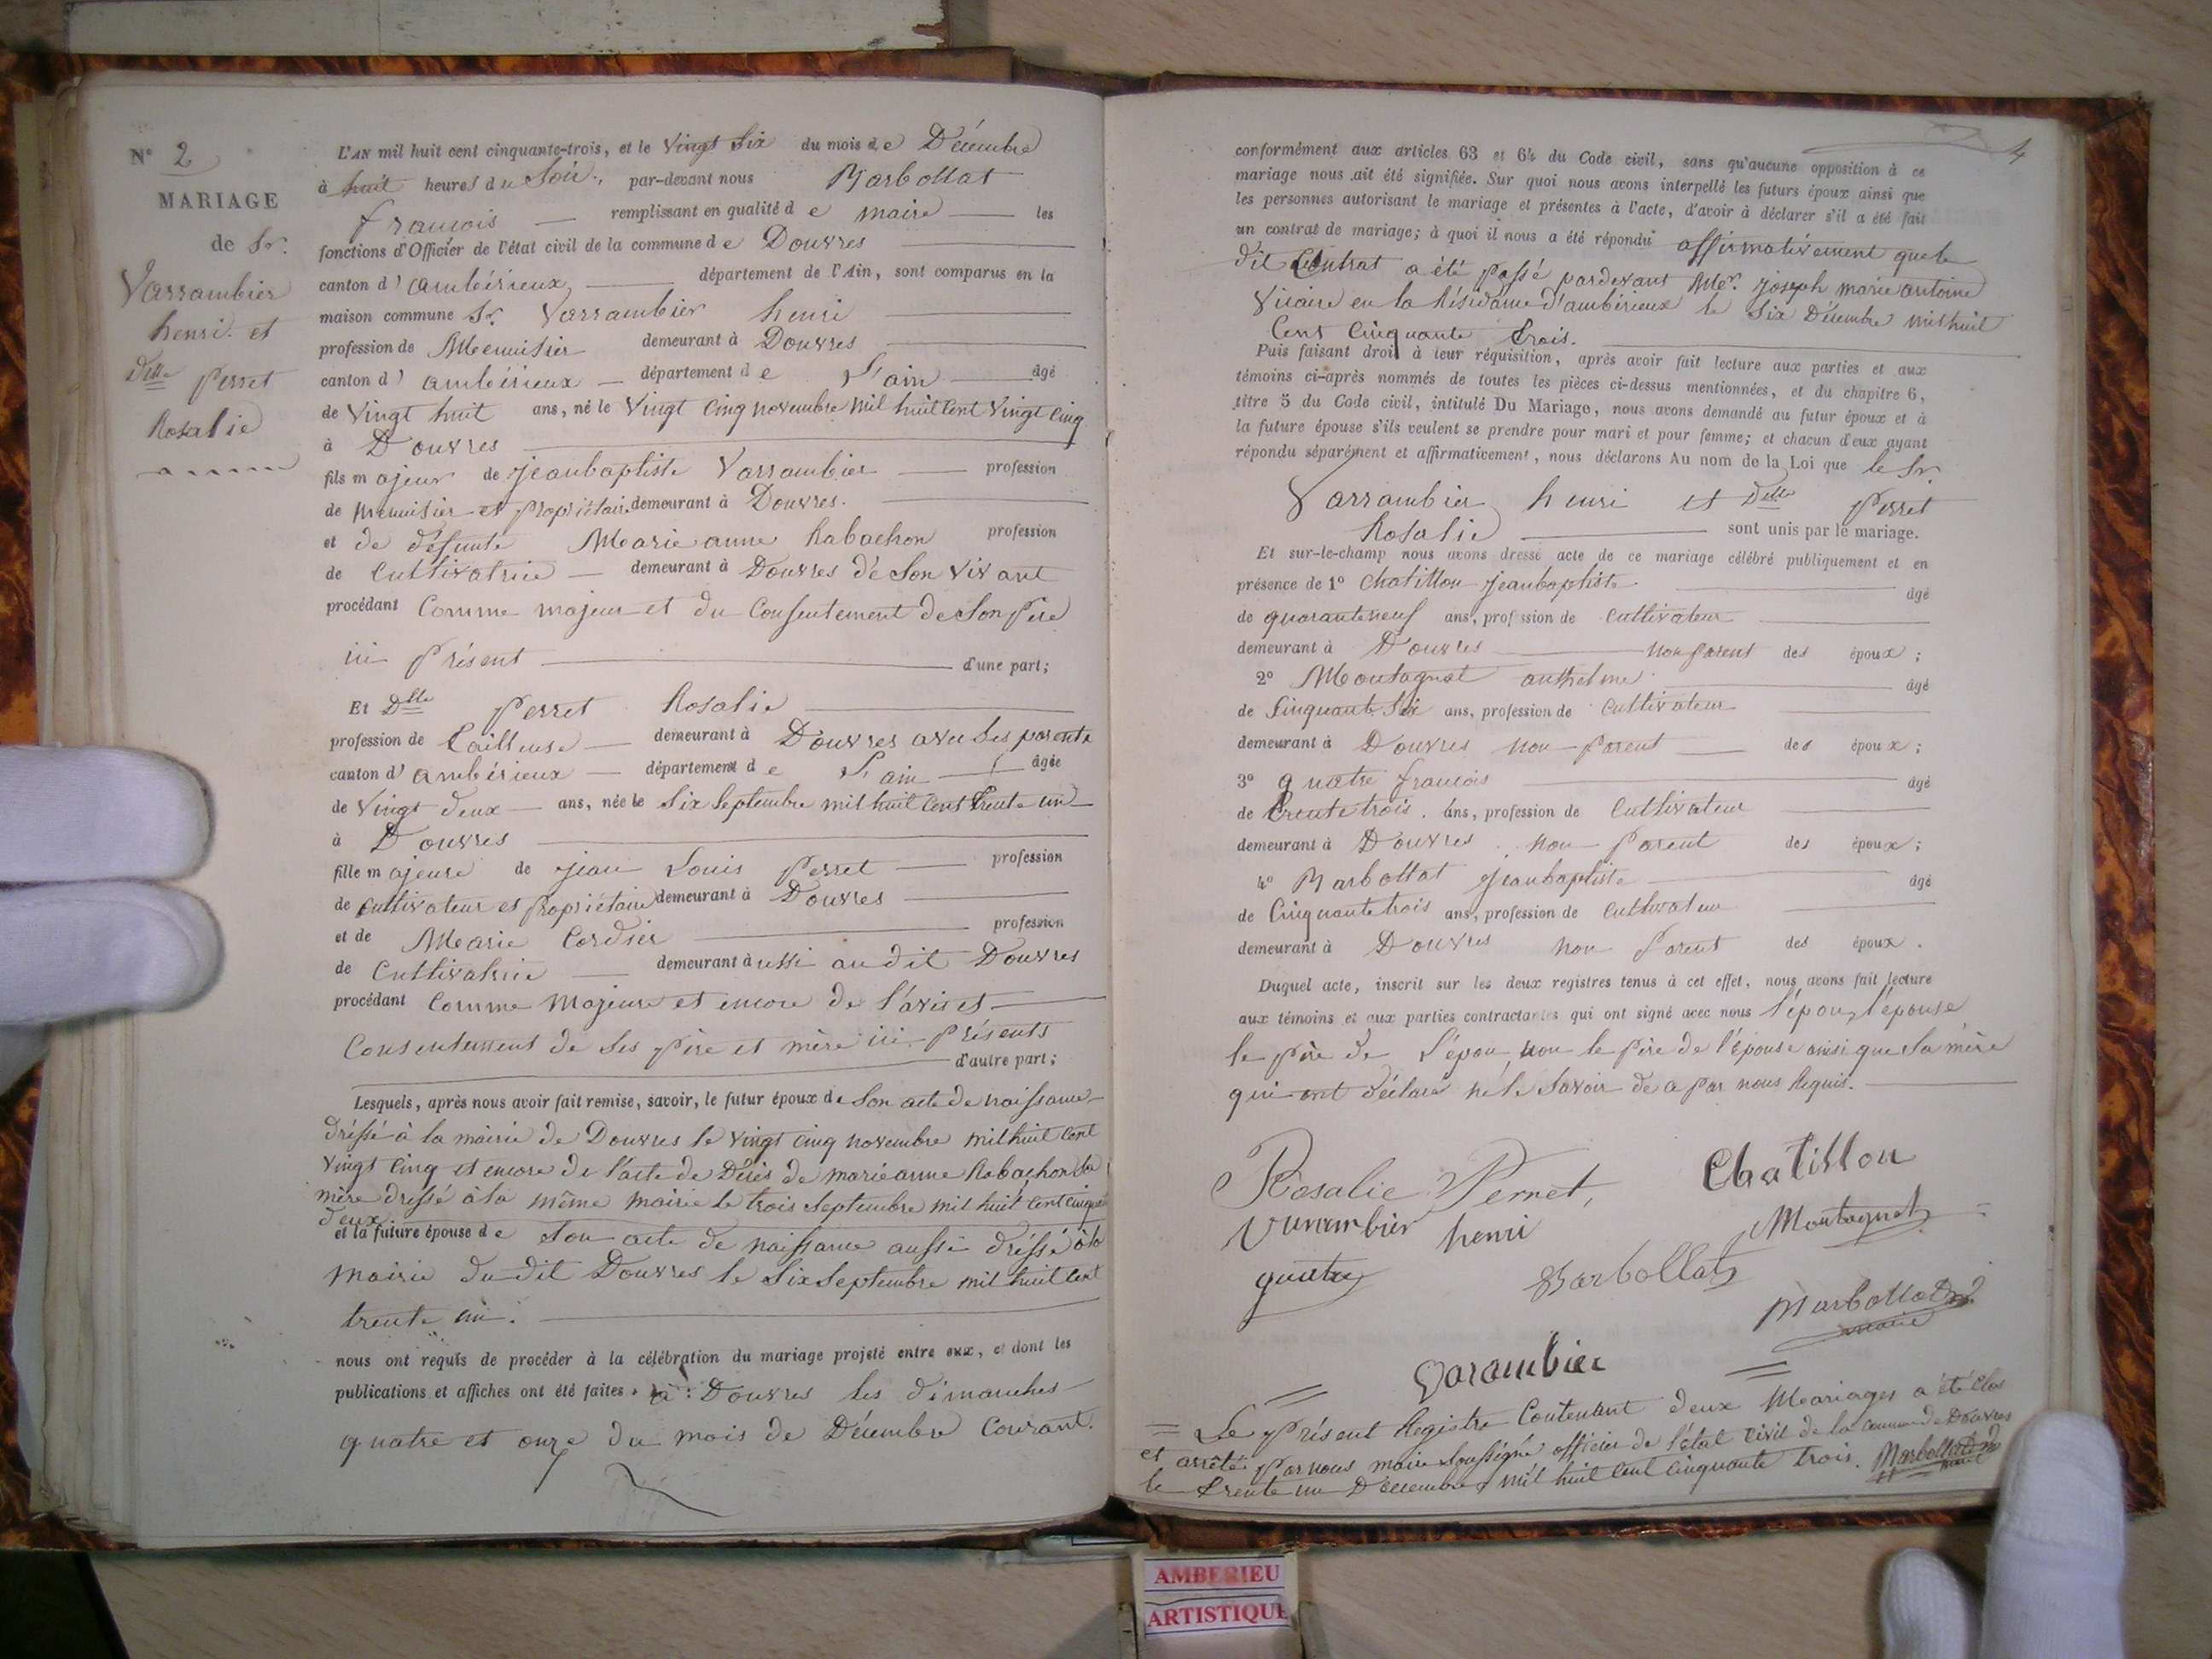 N° 2
MARIAGE
de Sr.
Varrambier
henri. et
Dlle perret
Rosalie
L'AN mil huit cent cinquante-trois, et le Vingt Six du mois de Décembre
à huit heures du Soir, par-devant nous Marbollat
francois remplissant en qualité de maire les
fonctions d'Officier de l'état civil de la commune de Douvres
canton d'ambérieux département de l'Ain, sont comparus en la
maison commune Sr. Varrambier henri
profession de Menuisier demeurant à Douvres
canton d'ambérieux département de L'ain âgé
de Vingt huit ans, né le Vingt Cinq novembre Mil huit Cent Vingt Cinq
à Douvres
fils majeur de jeanbaptiste Varrambier profession
de menuisier et propriétaire demeurant à Douvres.
et de défunte Marie anne Rabachon profession
de Cultivatrice demeurant à Douvres de Son Vivant
procédant Comme majeur et du Consentement de Son père
ici présent d'une part;
Et Dlle perret Rosalie
profession de Tailleuse demeurant à Douvres avec Ses parents
canton d'ambérieux département de L'ain âgée
de Vingt deux ans, née le Six Septembre mil huit Cent Trente un
à Douvres
fille majeure de jean Louis perret profession
de Cultivateur et propriétaire demeurant à Douvres
et de Marie Cordier profession
de Cultivatrice demeurant aussi au dit Douvres
procédant Comme Majeure et encore de l'avis et
Consentement de Ses père et mère ici présents
d'autre part;
Lesquels, après nous avoir fait remise, savoir, le futur époux de Son acte de naissance
dréssé à la mairie de Douvres le vingt cinq novembre mil huit Cent
Vingt Cinq et encore de l'acte de Décès de marie anne Rabachon Sa
mère dressé à la même mairie le trois Septembre mil huit Cent cinquante
deux
et la future épouse de Son acte de naissance aussi dréssé à la
mairie du dit Douvres le Six Septembre mil huit Cent
trente un.
nous ont requis de procéder à la célébration du mariage projeté entre eux, et dont les
publications et affiches ont été faites à Douvres les dimanches
quatre et onze du mois de Décembre Courant.
4
conformément aux articles 63 et 64 du Code civil, sans qu'aucune opposition à ce
mariage nous ait été signifiée. Sur quoi nous avons interpellé les futurs époux ainsi que
les personnes autorisant le mariage et présentes à l'acte, d'avoir à déclarer s'il a été fait
un contrat de mariage; à quoi il nous a été répondu affirmativement que le
dit Contrat a été passé pardevant Me. joseph marie antoine
Vicaire en la Résidance d'ambérieux le Six Décembre mil huit
Cent Cinquante trois.
Puis faisant droit à leur réquisition, après avoir fait lecture aux parties et aux
témoins ci-après nommés de toutes les pièces ci-dessus mentionnées, et du chapitre 6,
titre 5 du Code civil, intitulé Du Mariage, nous avons demandé au futur époux et à
la future épouse s'ils veulent se prendre pour mari et pour femme; et chacun d'eux ayant
répondu séparément et affirmativement, nous déclarons Au nom de la Loi que le Sr.
Varrambier henri et Dlle Perret
Rosalie sont unis par le mariage.
Et sur-le-champ nous avons dressé acte de ce mariage célébré publiquement et en
présence de 1° Chatillon jeanbaptiste âgé
de quarante neuf ans, profession de Cultivateur
demeurant à Douvres non parent des époux;
2° Montagnat anthelme âgé
de Cinquante Six ans, profession de Cultivateur
demeurant à Douvres non parent des époux;
3° quatre francois âgé
de Trente trois ans, profession de Cultivateur
demeurant à Douvres non Parent des époux;
4° Marbollat jeanbaptiste âgé
de Cinquante trois ans, profession de Cultivateur
demeurant à Douvres non Parent des époux.
Duquel acte, inscrit sur les deux registres tenus à cet effet, nous avons fait lecture
aux témoins et aux parties contractantes qui ont signé avec nous l'époux, l'épouse
le père de L'époux, non le père de l'épouse ainsi que Sa mère
qui ont déclaré ne le Savoir de ce par nous Requis.
Rosalie Pernet, Chatillon
Varrambier henri Montagnat
quatre Barbollat Marbollat
maire
Varambier
Le présent Registre Contenant deux Mariages a été Clos
et arrêté par nous maire Soussigné officier de l'état Civil de la commune de Douvres
le trente un Décembre mil huit Cent Cinquante trois. Marbollat
maire
AMBERIEU
ARTISTIQUE